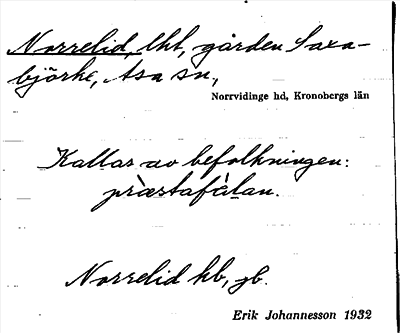 Norrelid, lht, gården Saxa-
björke, Asa sn,
Norrvidinge hd, Kronobergs län
Kallas av befolkningen:
præstafàlan.
Norrelid hb, jb.
Erik Johannesson 1932